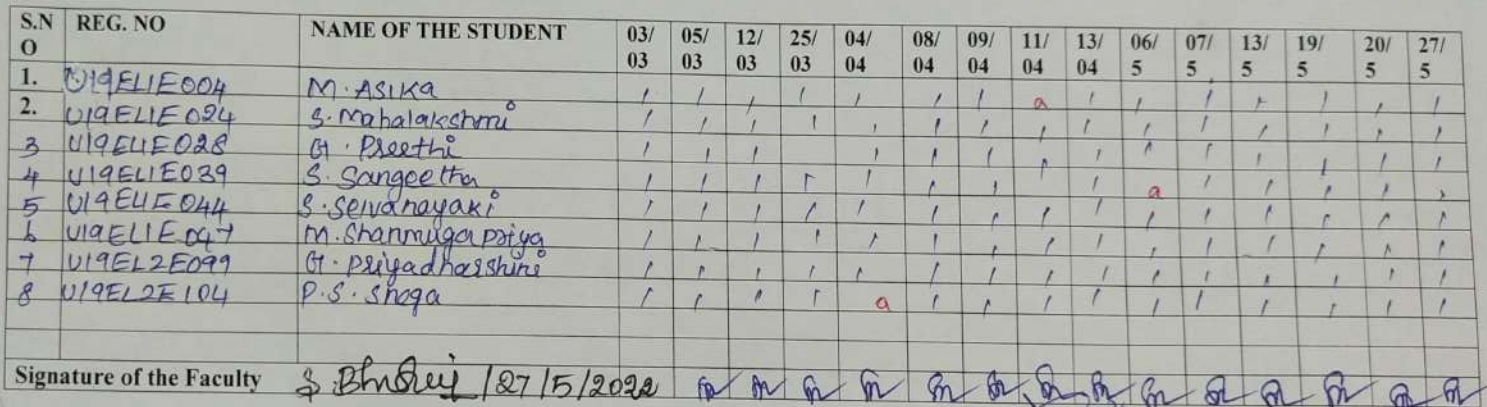 S.N O REG. NO NAME OF THE STUDENT 03/03 05/03 12/03 25/03 04/04 08/04 09/04 11/04 13/04 06/5 07/5 13/5 19/5 20/5 27/5
1. U19EL1E004 M. ASIKA / / / / / / / a / / / / / / /
2. U19EL1E024 S. Mahalakshmi / / / / / / / / / / / / / / /
3 U19EL1E028 G. Preethi / / / / / / / / / / / / / /
4 U19EL1E039 S. Sangeetha / / / / / / / / / a / / / / /
5 U19EL1E044 S. Selvanayaki / / / / / / / / / / / / / / /
6 U19EL1E047 M. Shanmuga priya / / / / / / / / / / / / / / /
7 U19EL2E099 G. Priyadharshini / / / / / / / / / / / / / / /
8 U19EL2E104 P.S. Shoga / / / / a / / / / / / / / / /
Signature of the Faculty 27/5/2022